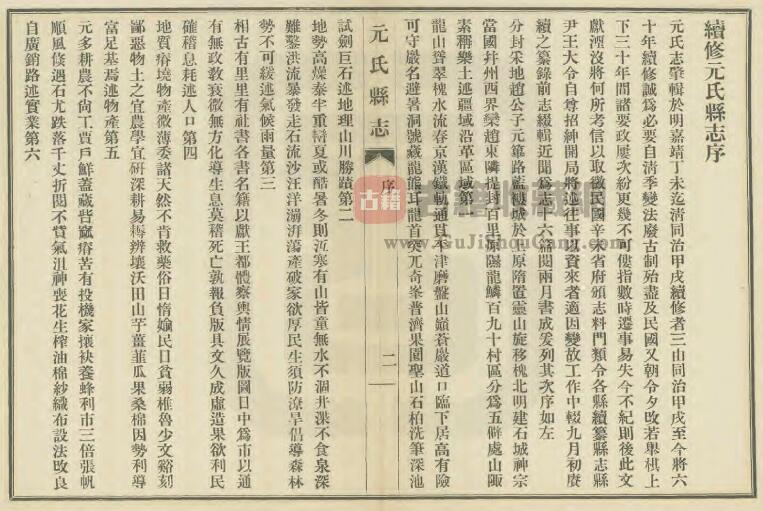 續修元氏縣志序
元氏志肇輯於明嘉靖丁未迄清同治甲戌續修者三由同治甲戌至今將六
十年續修誠為必要自清季變法廢古制殆盡及民國又朝令夕改若舉棋上
下三十年間諸要政屢次紛更幾不可僂指數時遷事易失今不紀則後此文
獻湮沒將何所考信以取徵民國辛未省府頒志料門類令各縣續纂縣志縣
尹王大令自尊招紳開局將述往事以資來者適因變故工作中輟九月初賡
續之纂錄前志綴輯近聞為志十六篇閱兩月書成爰列其次序如左
分封采地趙公子元篳路藍縷城於上原隋置靈山旋移槐北明建石城神宗
當國幷州西界欒趙東隣提封百里原隰龍鱗百九十村區分為五僻處山陬
素稱樂土述疆域沿革區域第一
龍山聳翠槐水流春京漢鐵軌通貫本津磨盤山巔蒼巖道口臨下居高有險
可守嚴名避暑洞號藏龍熊耳龍首突兀奇峯普濟果園聖山石柏洗筆深池
元氏縣志
序
二
試劍巨石述地理山川勝蹟第二
地勢高燥泰半重巒夏或酷暑冬則沍寒有山皆童無水不涸井渫不食泉深
難鑿洪流暴發走石流沙汪洋溺湃蕩產破家欲厚民生須防潦旱倡導森林
勢不可緩述氣候雨量第三
相古有里里有社書各書名籍以獻王都體察輿情展覽版圖日中為市以通
有無政教衰微無方化導生息莫稽死亡孰報負版具文久成虛造果欲利民
確稽息耗述人口第四
地質瘠墝物產微薄委諸天然不肯救藥俗日惰媮民日貧弱椎魯少文谿刻
鄙惡物土之宜農學宜研深耕易耨辨壤沃田山芋薑韮瓜果桑棉因勢利導
富足基焉述物產第五
元多耕農不尚工賈戶鮮蓋藏呰窳瘠苦有投機家攘袂養蜂利市三倍張帆
順風倏遇石尤跌落千丈折閱不貲氣沮神喪花生榨油棉紗織布設法改良
自廣銷路述實業第六
古籍
www.GuJiShuCang.com